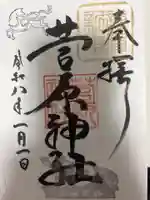 奉拝
菅原神社
令和八年一月一日